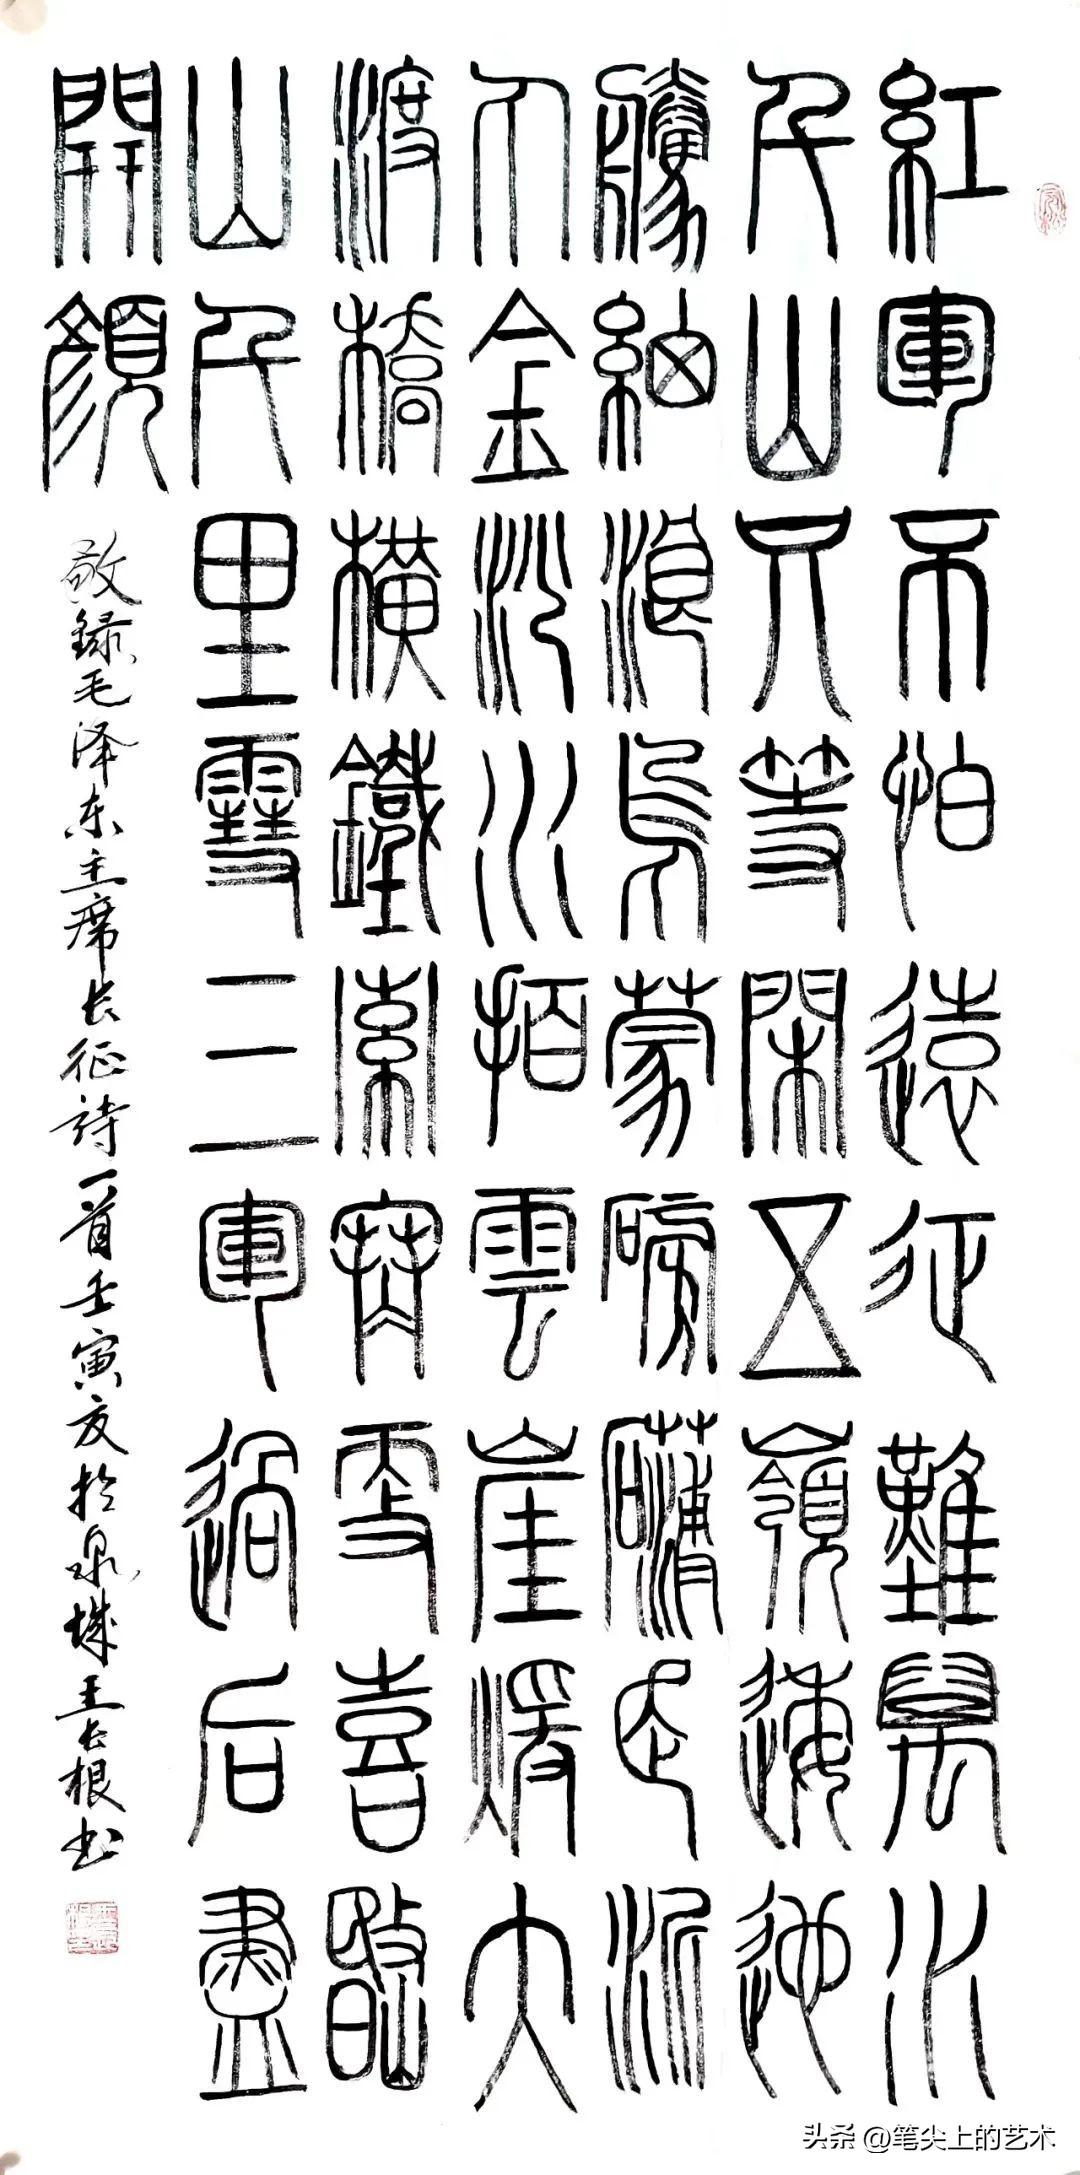 紅軍不怕遠征難萬水
千山只等閑五嶺逶迤
騰細浪烏蒙磅礴走泥
丸金沙水拍雲崖暖大
渡橋橫鐵索寒更喜岷
山千里雪三軍過后盡
開顏
敬録毛泽东主席长征詩一首壬寅夏於泉城王长根书
头条 @笔尖上的艺术